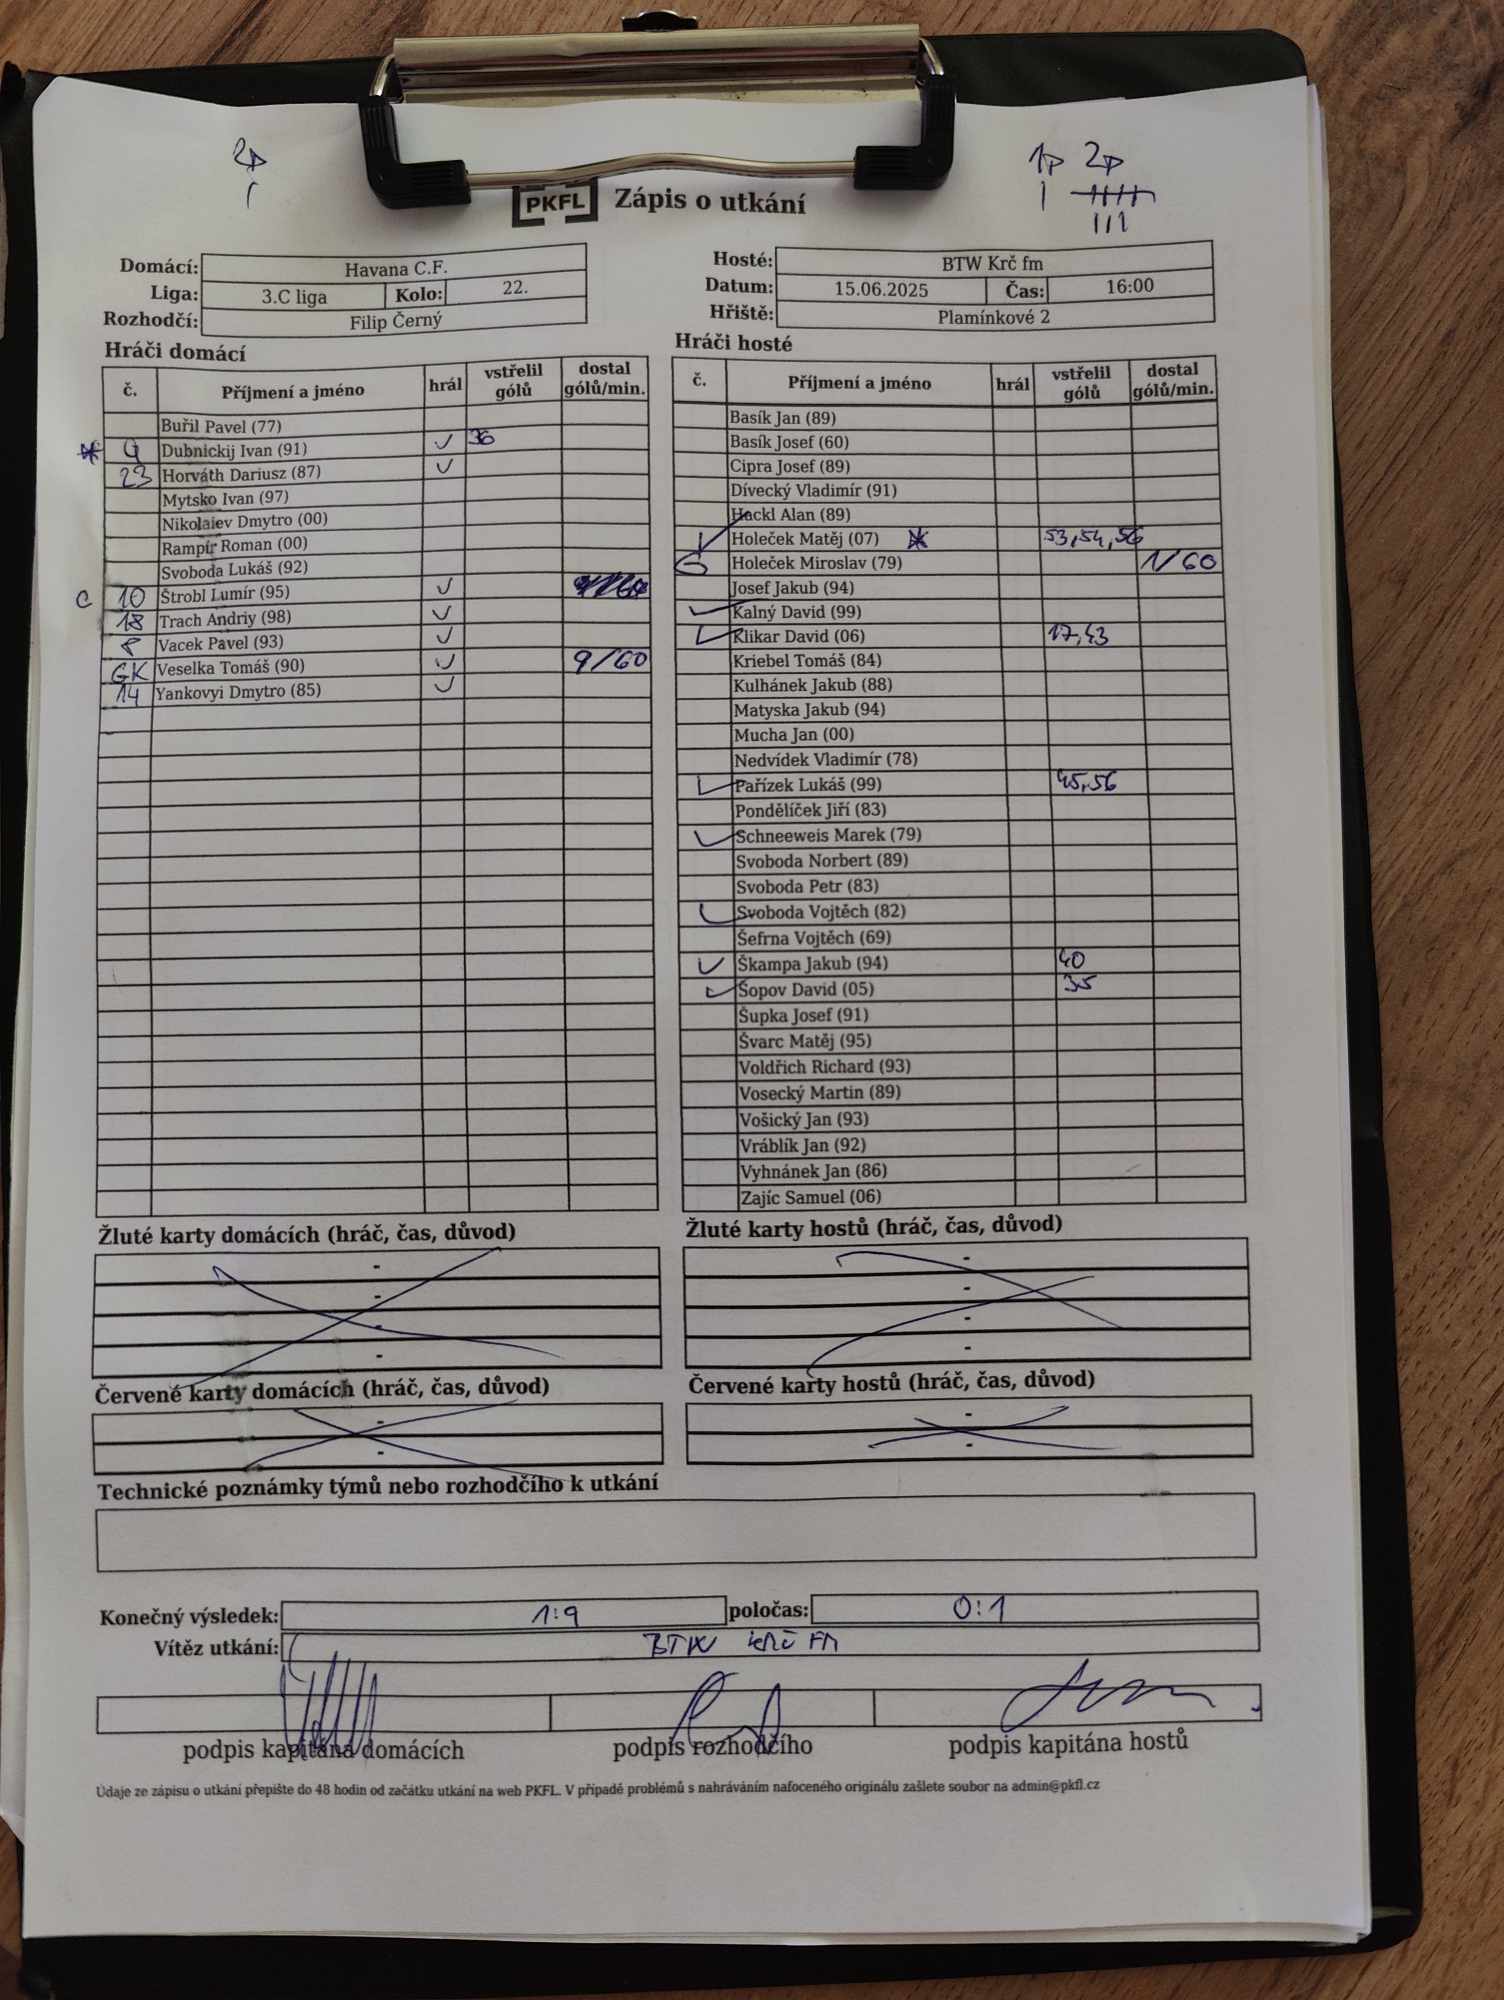 2p
1p 2p
PKFL Zápis o utkání
Domácí: Havana C.F.
Liga: 3.C liga Kolo: 22.
Rozhodčí: Filip Černý
Hosté: BTW Krč fm
Datum: 15.06.2025 Čas: 16:00
Hřiště: Plamínkové 2
Hráči domácí
č. Příjmení a jméno hrál vstřelil gólů dostal gólů/min.
Buřil Pavel (77)
9 Dubnickij Ivan (91) ✓ 36
23 Horváth Dariusz (87) ✓
Mytsko Ivan (97)
Nikolaiev Dmytro (00)
Rampír Roman (00)
Svoboda Lukáš (92)
C 10 Štrobl Lumír (95) ✓
18 Trach Andriy (98) ✓
8 Vacek Pavel (93) ✓
GK Veselka Tomáš (90) ✓ 9/60
14 Yankovyi Dmytro (85) ✓
Hráči hosté
č. Příjmení a jméno hrál vstřelil gólů dostal gólů/min.
Basík Jan (89)
Basík Josef (60)
Cipra Josef (89)
Dívecký Vladimír (91)
Hackl Alan (89)
✓ Holeček Matěj (07) 53,54,56
G Holeček Miroslav (79) 1/60
Josef Jakub (94)
✓ Kalný David (99)
✓ Klikar David (06) 17,43
Kriebel Tomáš (84)
Kulhánek Jakub (88)
Matyska Jakub (94)
Mucha Jan (00)
Nedvídek Vladimír (78)
✓ Pařízek Lukáš (99) 45,56
Pondělíček Jiří (83)
✓ Schneeweis Marek (79)
Svoboda Norbert (89)
Svoboda Petr (83)
✓ Svoboda Vojtěch (82)
Šefrna Vojtěch (69)
✓ Škampa Jakub (94) 40
✓ Šopov David (05) 35
Šupka Josef (91)
Švarc Matěj (95)
Voldřich Richard (93)
Vosecký Martin (89)
Vošický Jan (93)
Vráblík Jan (92)
Vyhnánek Jan (86)
Zajíc Samuel (06)
Žluté karty domácích (hráč, čas, důvod)
-
-
-
-
Žluté karty hostů (hráč, čas, důvod)
-
-
-
-
Červené karty domácích (hráč, čas, důvod)
-
-
Červené karty hostů (hráč, čas, důvod)
-
-
Technické poznámky týmů nebo rozhodčího k utkání
Konečný výsledek: 1:9 poločas: 0:1
Vítěz utkání: BTW KRČ FM
podpis kapitána domácích podpis rozhodčího podpis kapitána hostů
Údaje ze zápisu o utkání přepište do 48 hodin od začátku utkání na web PKFL. V případě problémů s nahráváním nafoceného originálu zašlete soubor na admin@pkfl.cz